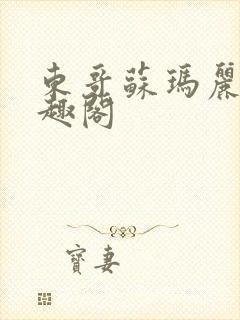 東哥蘇瑪麗
趣閣
寶妻